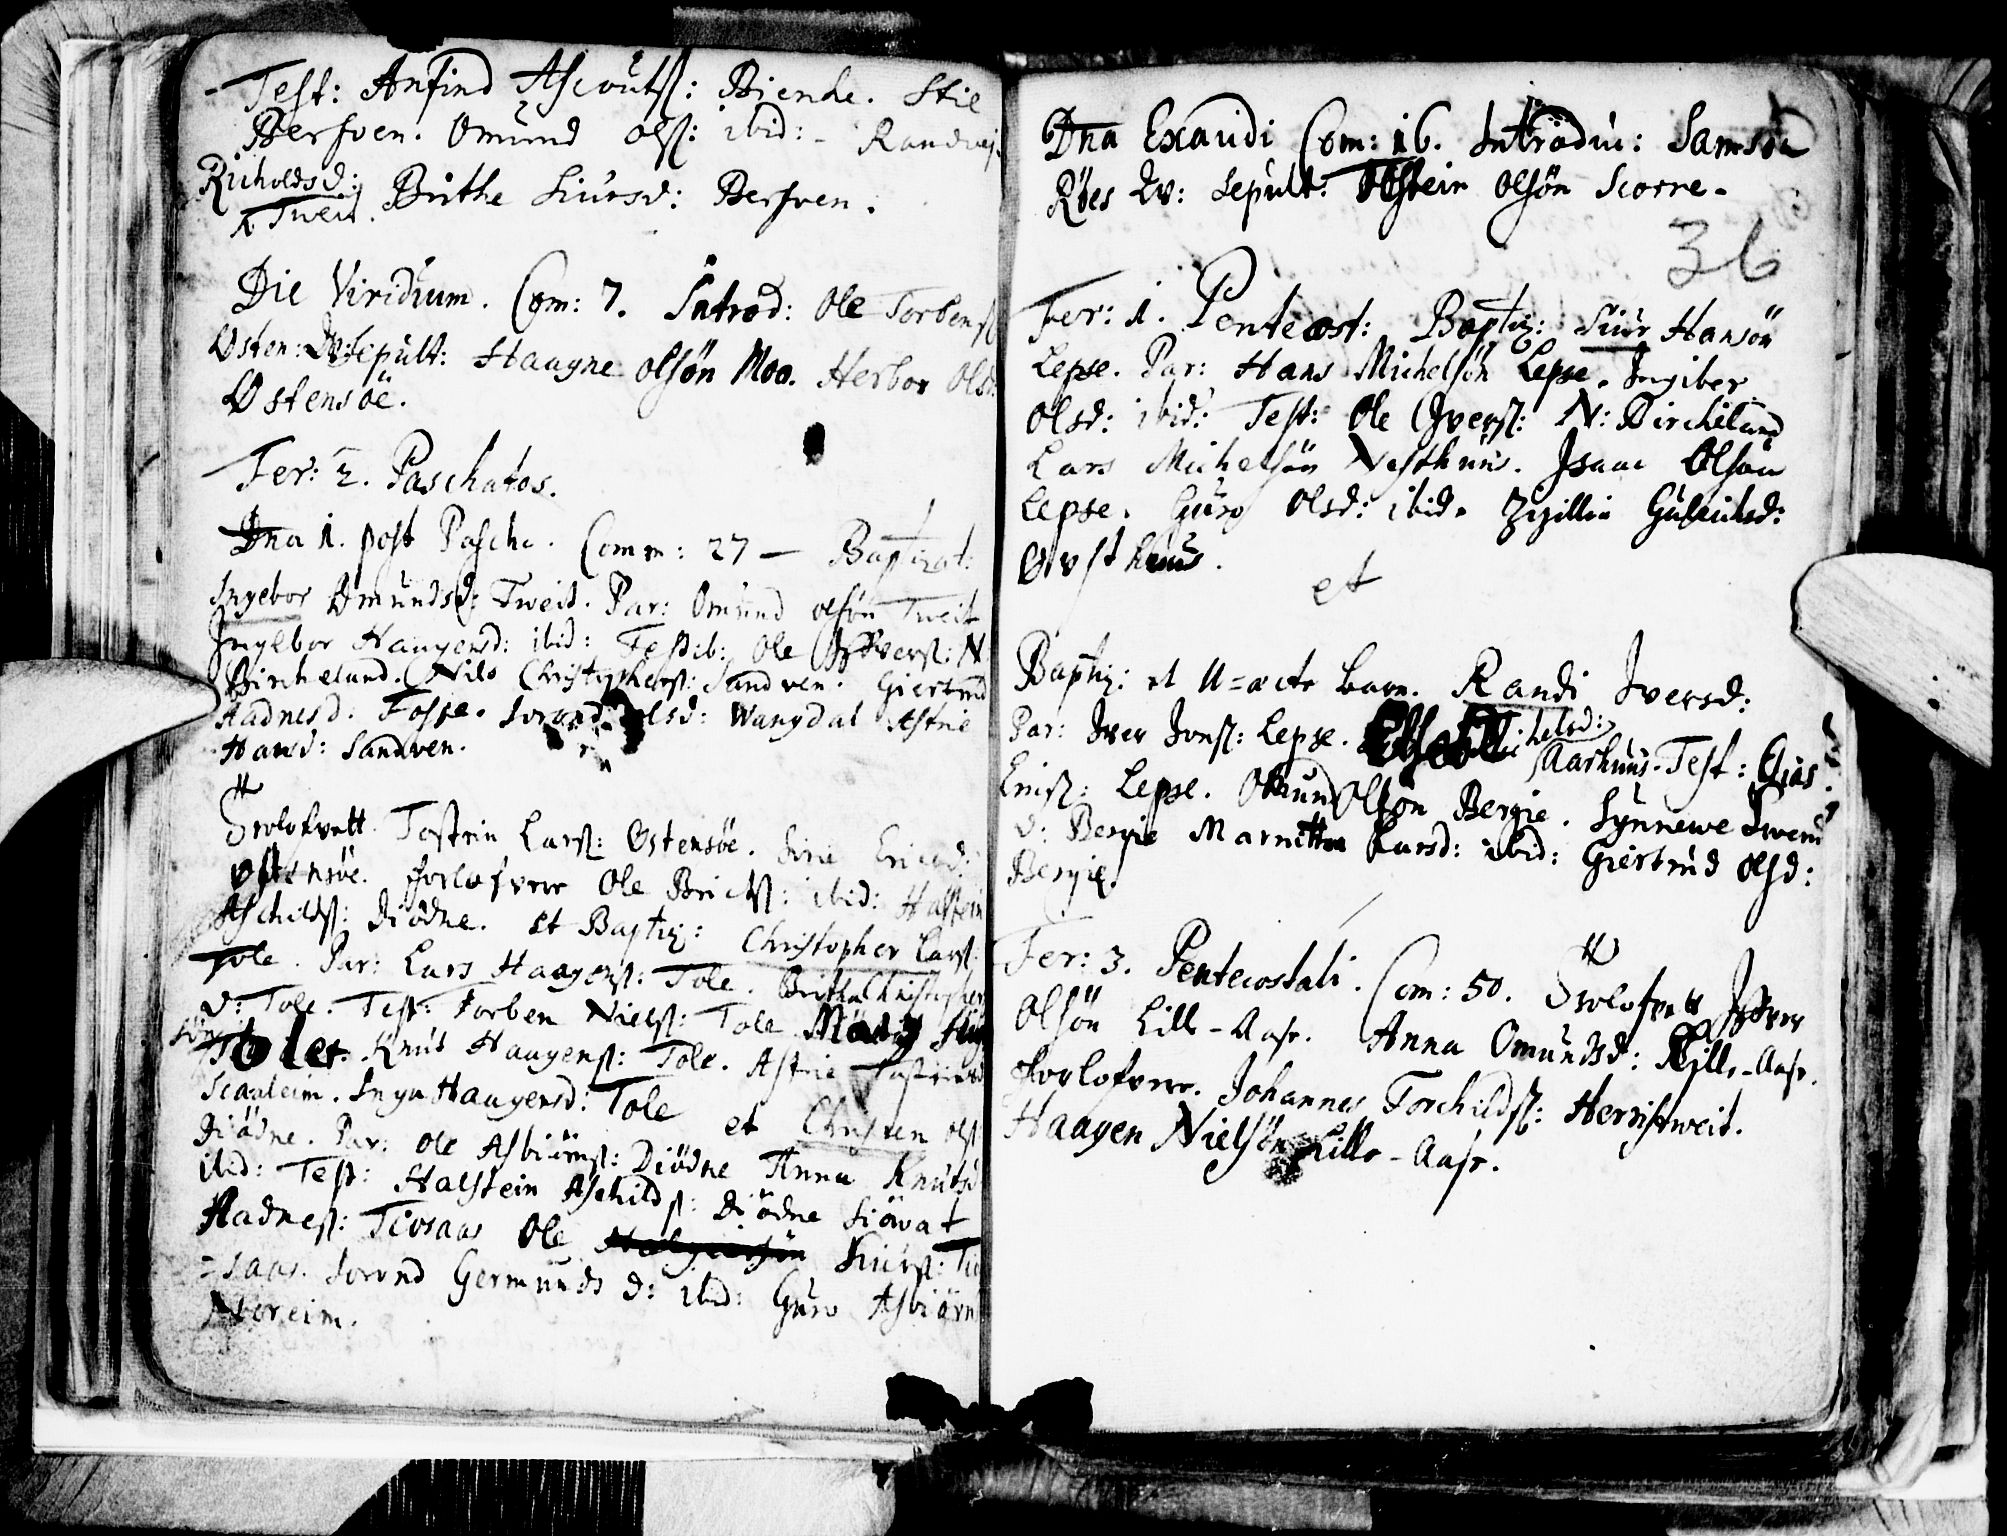 Test: Anfind Ascoutß: Bienhe. Stie
Berfven. Omund olß: ibid: - Randvei
Richoldsd:
Tweit. Brithe Siursd: Berfven.
Die Viridium. Com: 7. Introd: Ole Torbenß
Østen: Qv: Sepult: Haagne olsön Moo. Herbor Olsd:
Østensöe.
Fer: 2. Paschatos.
Dna 1. post Pasche. Comm: 27 — Baptizat:
Ingebor Omundsd: Tweit. Par: Omund olsön Tweit
Ingebor Haagensd: ibid: Testib: Ole Iverß: N
Bircheland. Nils Christopherß: Sandven. Giertrud
Aadnesd. Fosse. Sorond olsd: Wangdal Astrie
Hansd: Sandven.
Trolofvett. Tostein Larß: Ostensöe. Sirie Ericsd:
Østensöe. Forlofvere Ole Brictß: ibid: Halstein
Aschildß: Diödne. et Baptiz: Christopher Larß:
Tole. Par: Lars Haagenß: Tole. Britha Christopher
d: Tole. Test: Torben Nielß: Tole
sön Tole. Knut Haagenß: Tole. Astrie
Scaaleim. Inga Haagensd: Tole et Christen olß
Diödne. Par: Ole Asbiörnß: Diödne Anna Knutsd
ibid: Test: Halstein Aschildß: Diödne Siövat
Aadneß: Tiosaas Ole Siurß: Tio
=saas. Sorond Germunds d: ibid: Guro Asbiörn
Noreim.
Dna Exaudi Com: 16. Introdu: Samson
Röes Qv: Sepult: Obstein Olsön Scorre-
36
Fer: 1. Pentecost: Baptiz: Siur Hansön
Lepse. Par: Hans Michelsön Lepse. Ingiber
Olsd: ibid: Test: Ole Iverß: N: Bircheland
Lars Michelsön Nesthuus. Isaac Olsön
Lepse. Guro Olsd: ibid. Zizillia Guleichsd:
Ørsthuus.
et
Baptiz: et U=ecte barn. Randi Iversd:
Par: Iver Ionß: Lepse. Michelsd:
Aarhuus. Test: Elias
Eniß: Lepse. Omund Olsön Bergie. Synnewe Swend
d: Bergie Marritte Larsd: ibid: Giertrud Olsd:
Bergie.
Fer: 3. Pentecostali. Com: 50. Trolofvett Iver
Olsön Lille-Aase. Anna Omundsd: Lille-Aase.
Forlofvere. Johannes Torchildß: Herristweit.
Haagen Nielsön Lille-Aase.